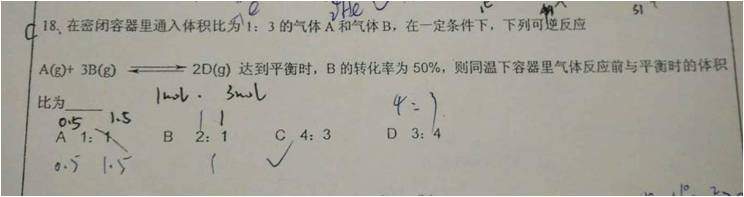 C 18、在密闭容器里通入体积比为1：3的气体A和气体B，在一定条件下，下列可逆反应
A(g)+ 3B(g) ⇌ 2D(g) 达到平衡时，B的转化率为50%，则同温下容器里气体反应前与平衡时的体积
比为____ 1mol. 3mol
0.5 1.5 1
A 1：1 B 2：1 C 4：3 D 3：4
0.5 1.5 1 ✓